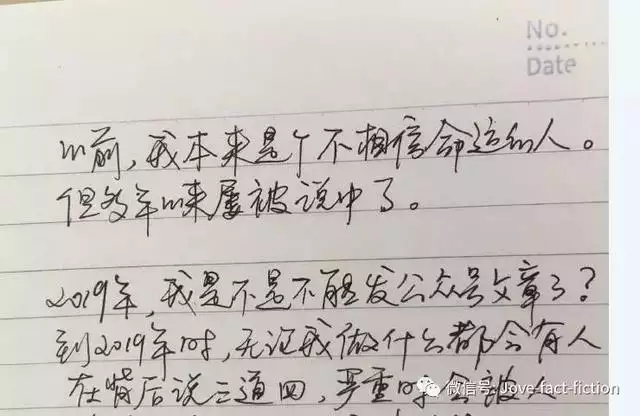 No.
Date
以前，我本来是个不相信命运的人。
但多年以来屡被说中了。
2019年，我是不是不能发公众号文章了？
到2019年时，无论我做什么都会有人
在背后说三道四，严重时会被人
微信号: love-fact-fiction